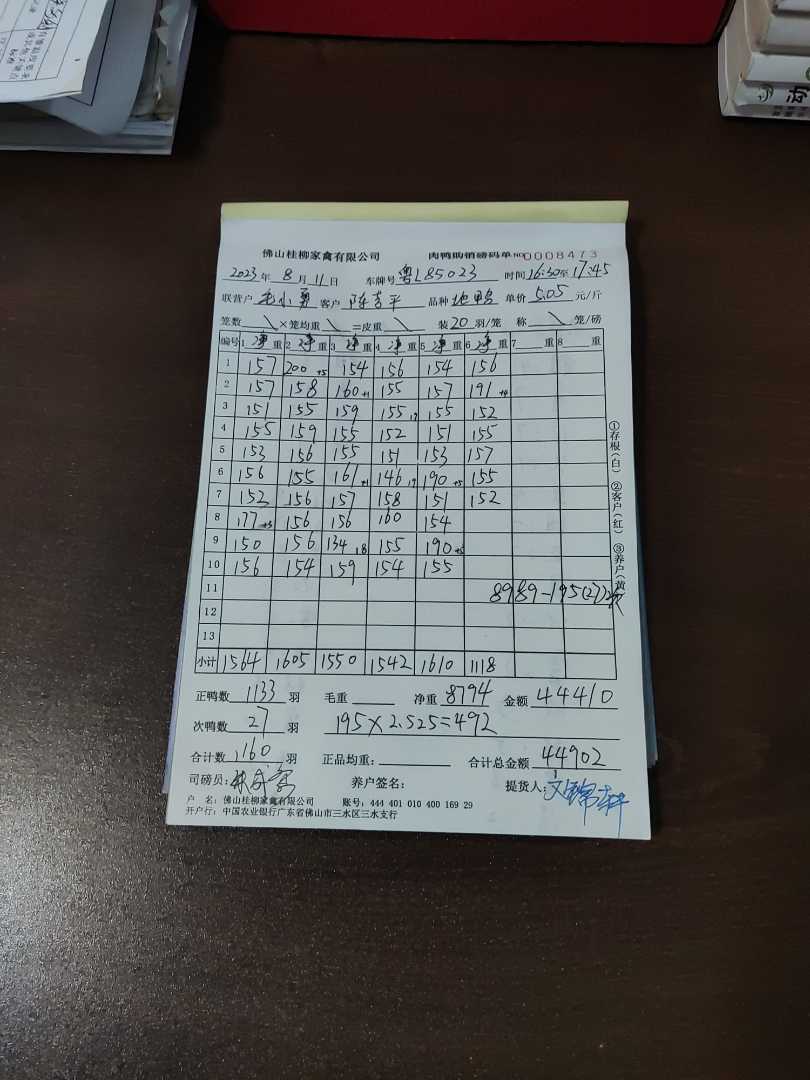 佛山桂柳家禽有限公司 肉鸭助销磅码单 NO 0008473
2023年 8月 11日 车牌号 粤L85023 时间 16:30至17:45
联营户 毛小勇 客户 陈吉平 品种 地鸭 单价 5.05 元/斤
笼数 \ ×笼均重 \ =皮重 \ 装 20 羽/笼 称 \ 笼/磅
编号 1 净重 2 净重 3 净重 4 净重 5 净重 6 净重 7 重 8 重
1 157 200 +5 154 156 154 156
2 157 158 160 +1 155 157 191 +4
3 151 155 159 155 155 152
4 155 159 155 152 151 155
5 153 156 155 151 153 157
6 156 155 161 +1 146 190 +5 155
7 152 156 157 158 151 152
8 177 +3 156 156 160 154
9 150 156 134 18 155 190 +5
10 156 154 159 154 155
11 8989-195(27)次
12
13
小计 1564 1605 1550 1542 1610 1118
①存根(白) ②客户(红) ③养户(黄)
正鸭数 1133 羽 毛重 净重 8794 金额 44410
次鸭数 27 羽 195×2.525=492
合计数 1160 羽 正品均重: 合计总金额 44902
司磅员: 养户签名: 提货人:
户 名: 佛山桂柳家禽有限公司 账号: 444 401 010 400 169 29
开户行: 中国农业银行广东省佛山市三水区三水支行
动